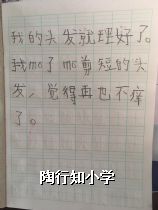 我的头发就理好了。
我mo了mo剪短的头
发，觉得再也不痒
了。
陶行知小学